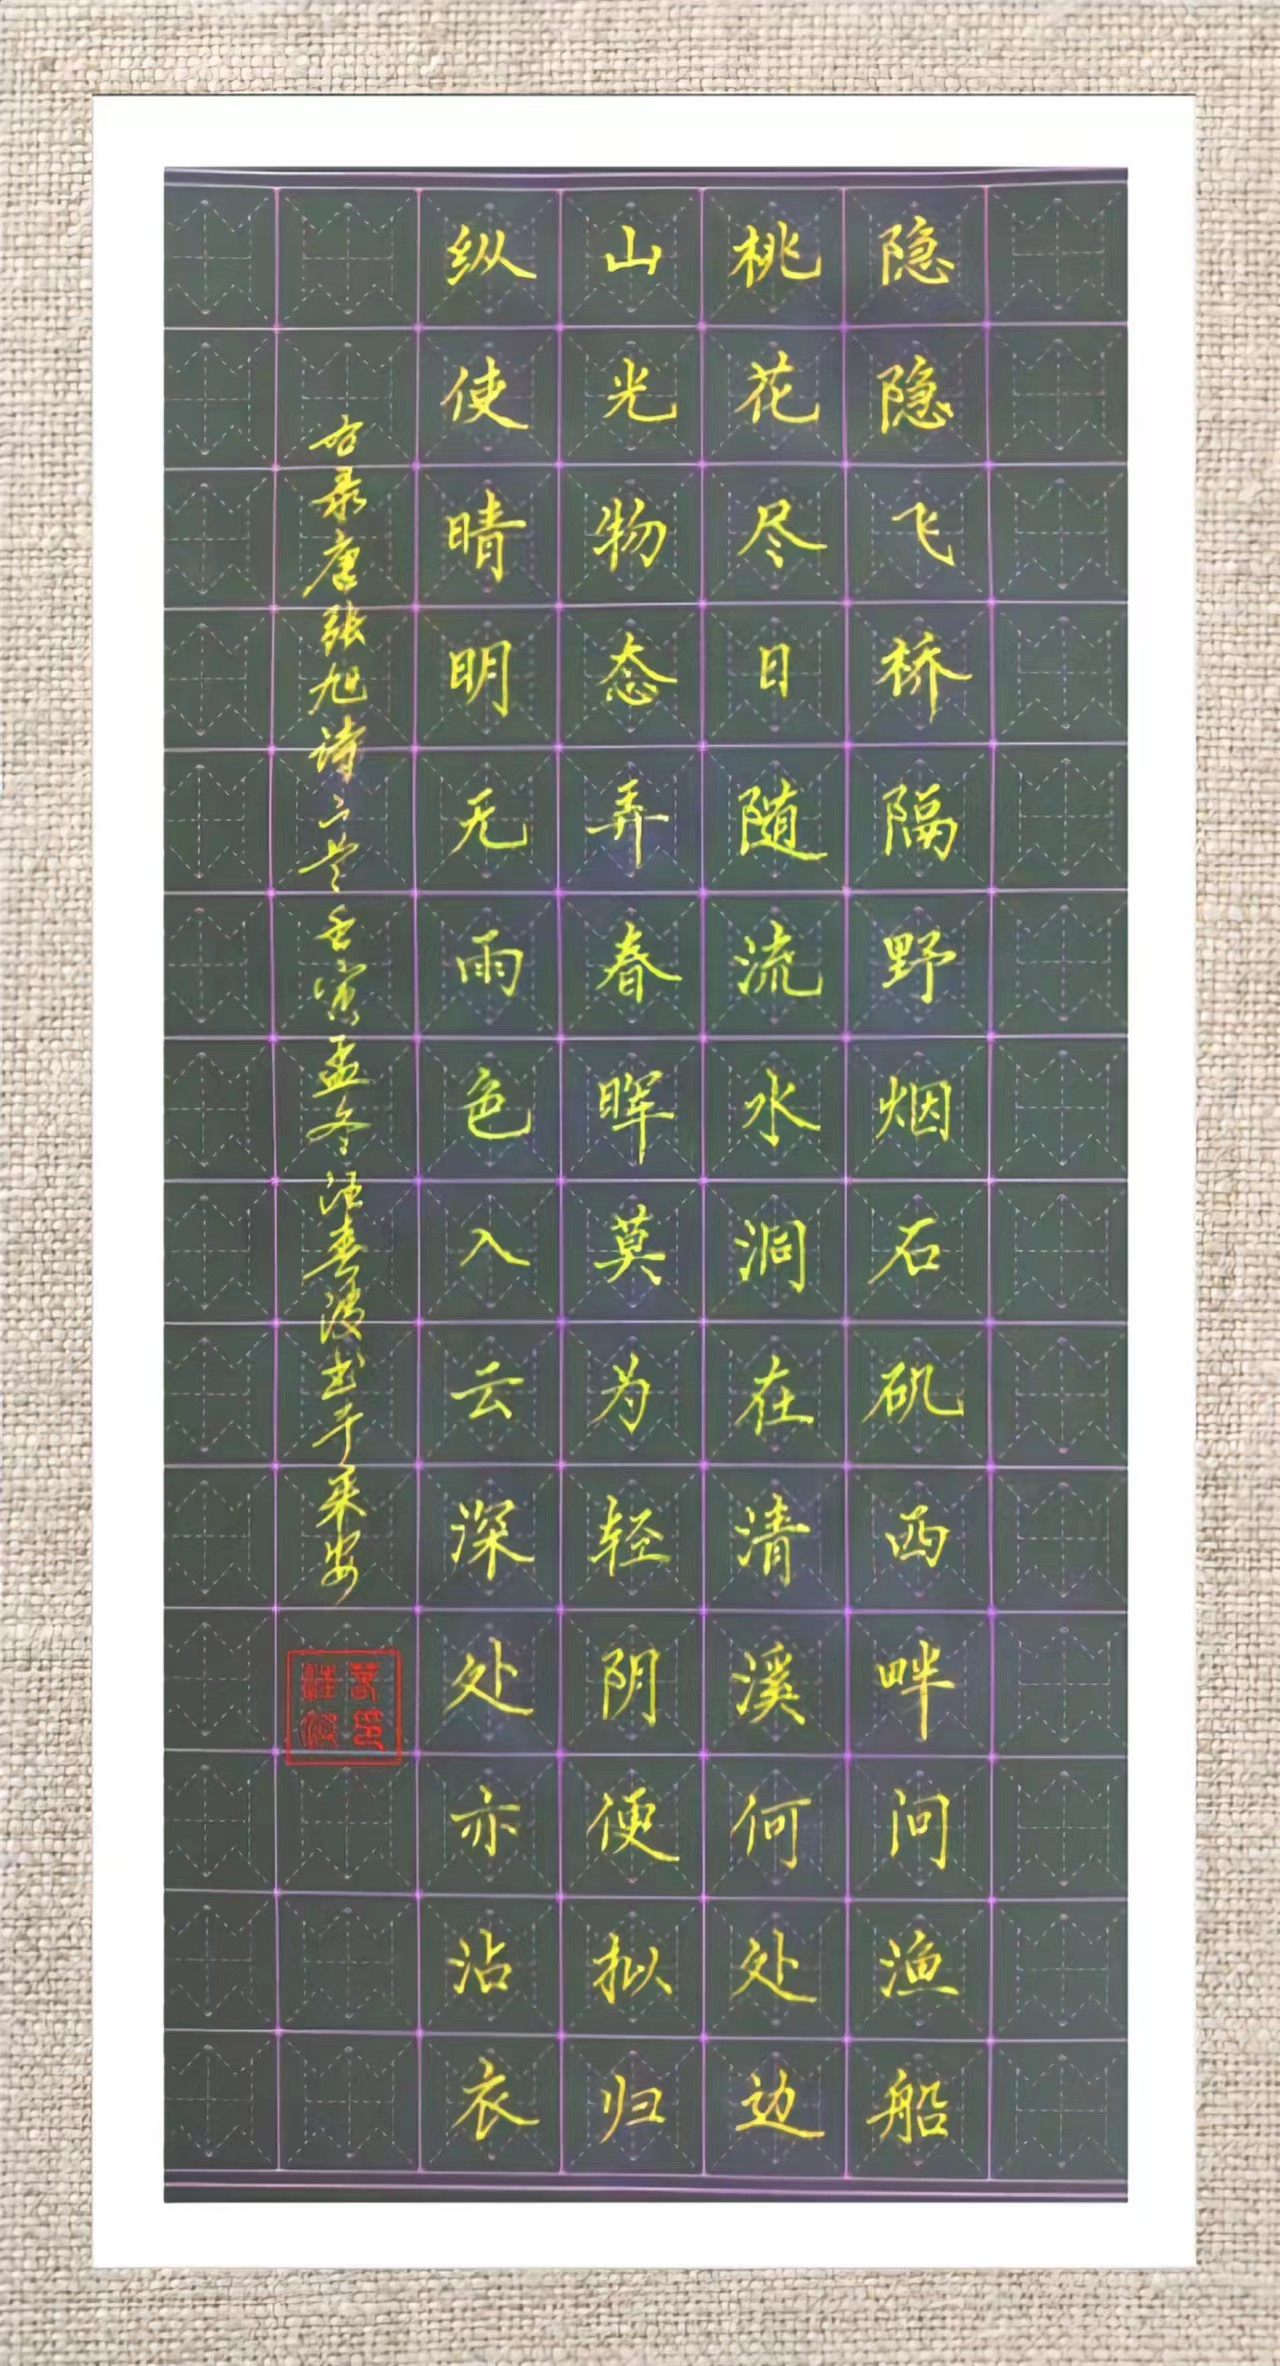 隐隐飞桥隔野烟石矶西畔问渔船
桃花尽日随流水洞在清溪何处边
山光物态弄春晖莫为轻阴便拟归
纵使晴明无雨色入云深处亦沾衣
右录唐张旭诗二首壬寅孟冬汪春浚书于来安